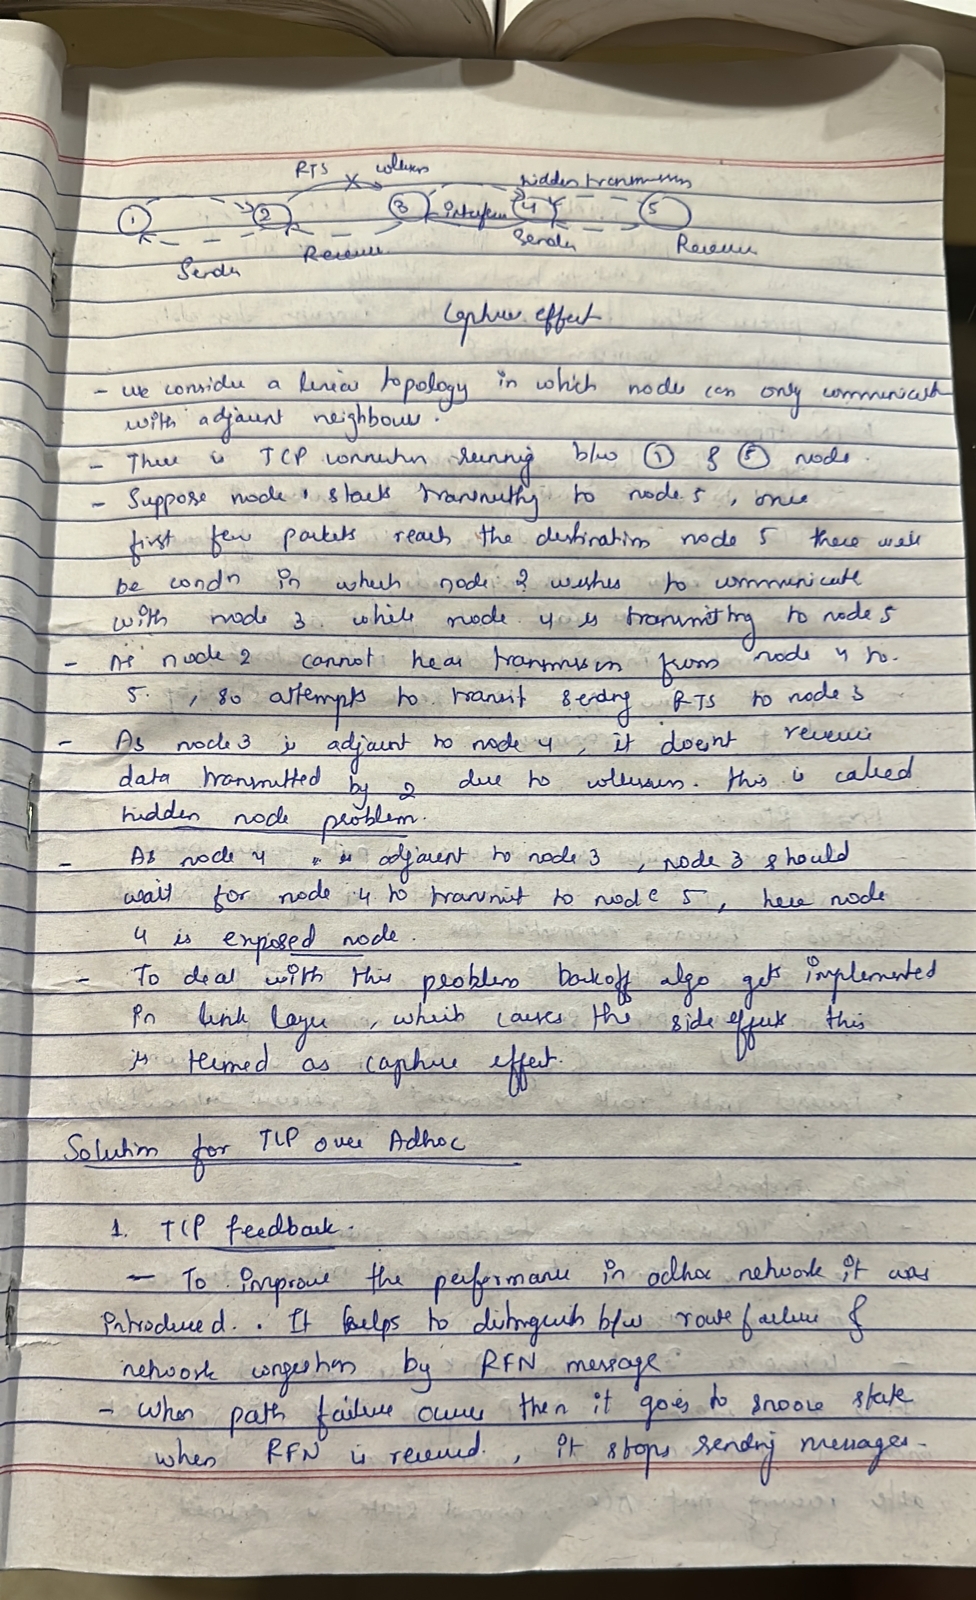 RTS collision hidden transmission
1 2 3 interfere 4 5
Sender Receiver Sender Receiver
Capture effect
- we consider a linear topology in which nodes can only communicate
with adjacent neighbour.
- There is TCP connection running b/w ① & ⑤ node.
- Suppose node 1 starts transmitting to node 5, once
first few packets reach the destination node 5 there will
be condn in which node 2 wishes to communicate
with node 3 while node 4 is transmitting to node 5
- As node 2 cannot hear transmission from node 4 to
5. , so attempts to transit sending RTS to node 3
- As node 3 is adjacent to node 4, it doesnt receive
data transmitted by 2 due to collision. this is called
hidden node problem.
- As node 4 is adjacent to node 3, node 3 should
wait for node 4 to transmit to node 5, here node
4 is exposed node.
- To deal with this problem backoff algo gets implemented
in link layer, which causes the side effects this
is termed as capture effect.
Solution for TCP over Adhoc
1. TCP feedback.
- To improve the performance in adhoc network it was
introduced. . It helps to distinguish b/w route failure &
network congestion by RFN message
- When path failure occurs then it goes to snooze state
when RFN is received. , it stops sending messages.